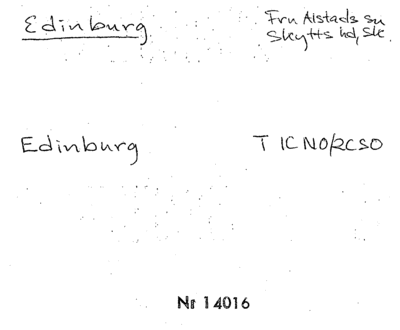 Edinburg
Fru Alstads sn
Skytts hd, Sk.
Edinburg
T IC NO/RCSO
Nr 14016